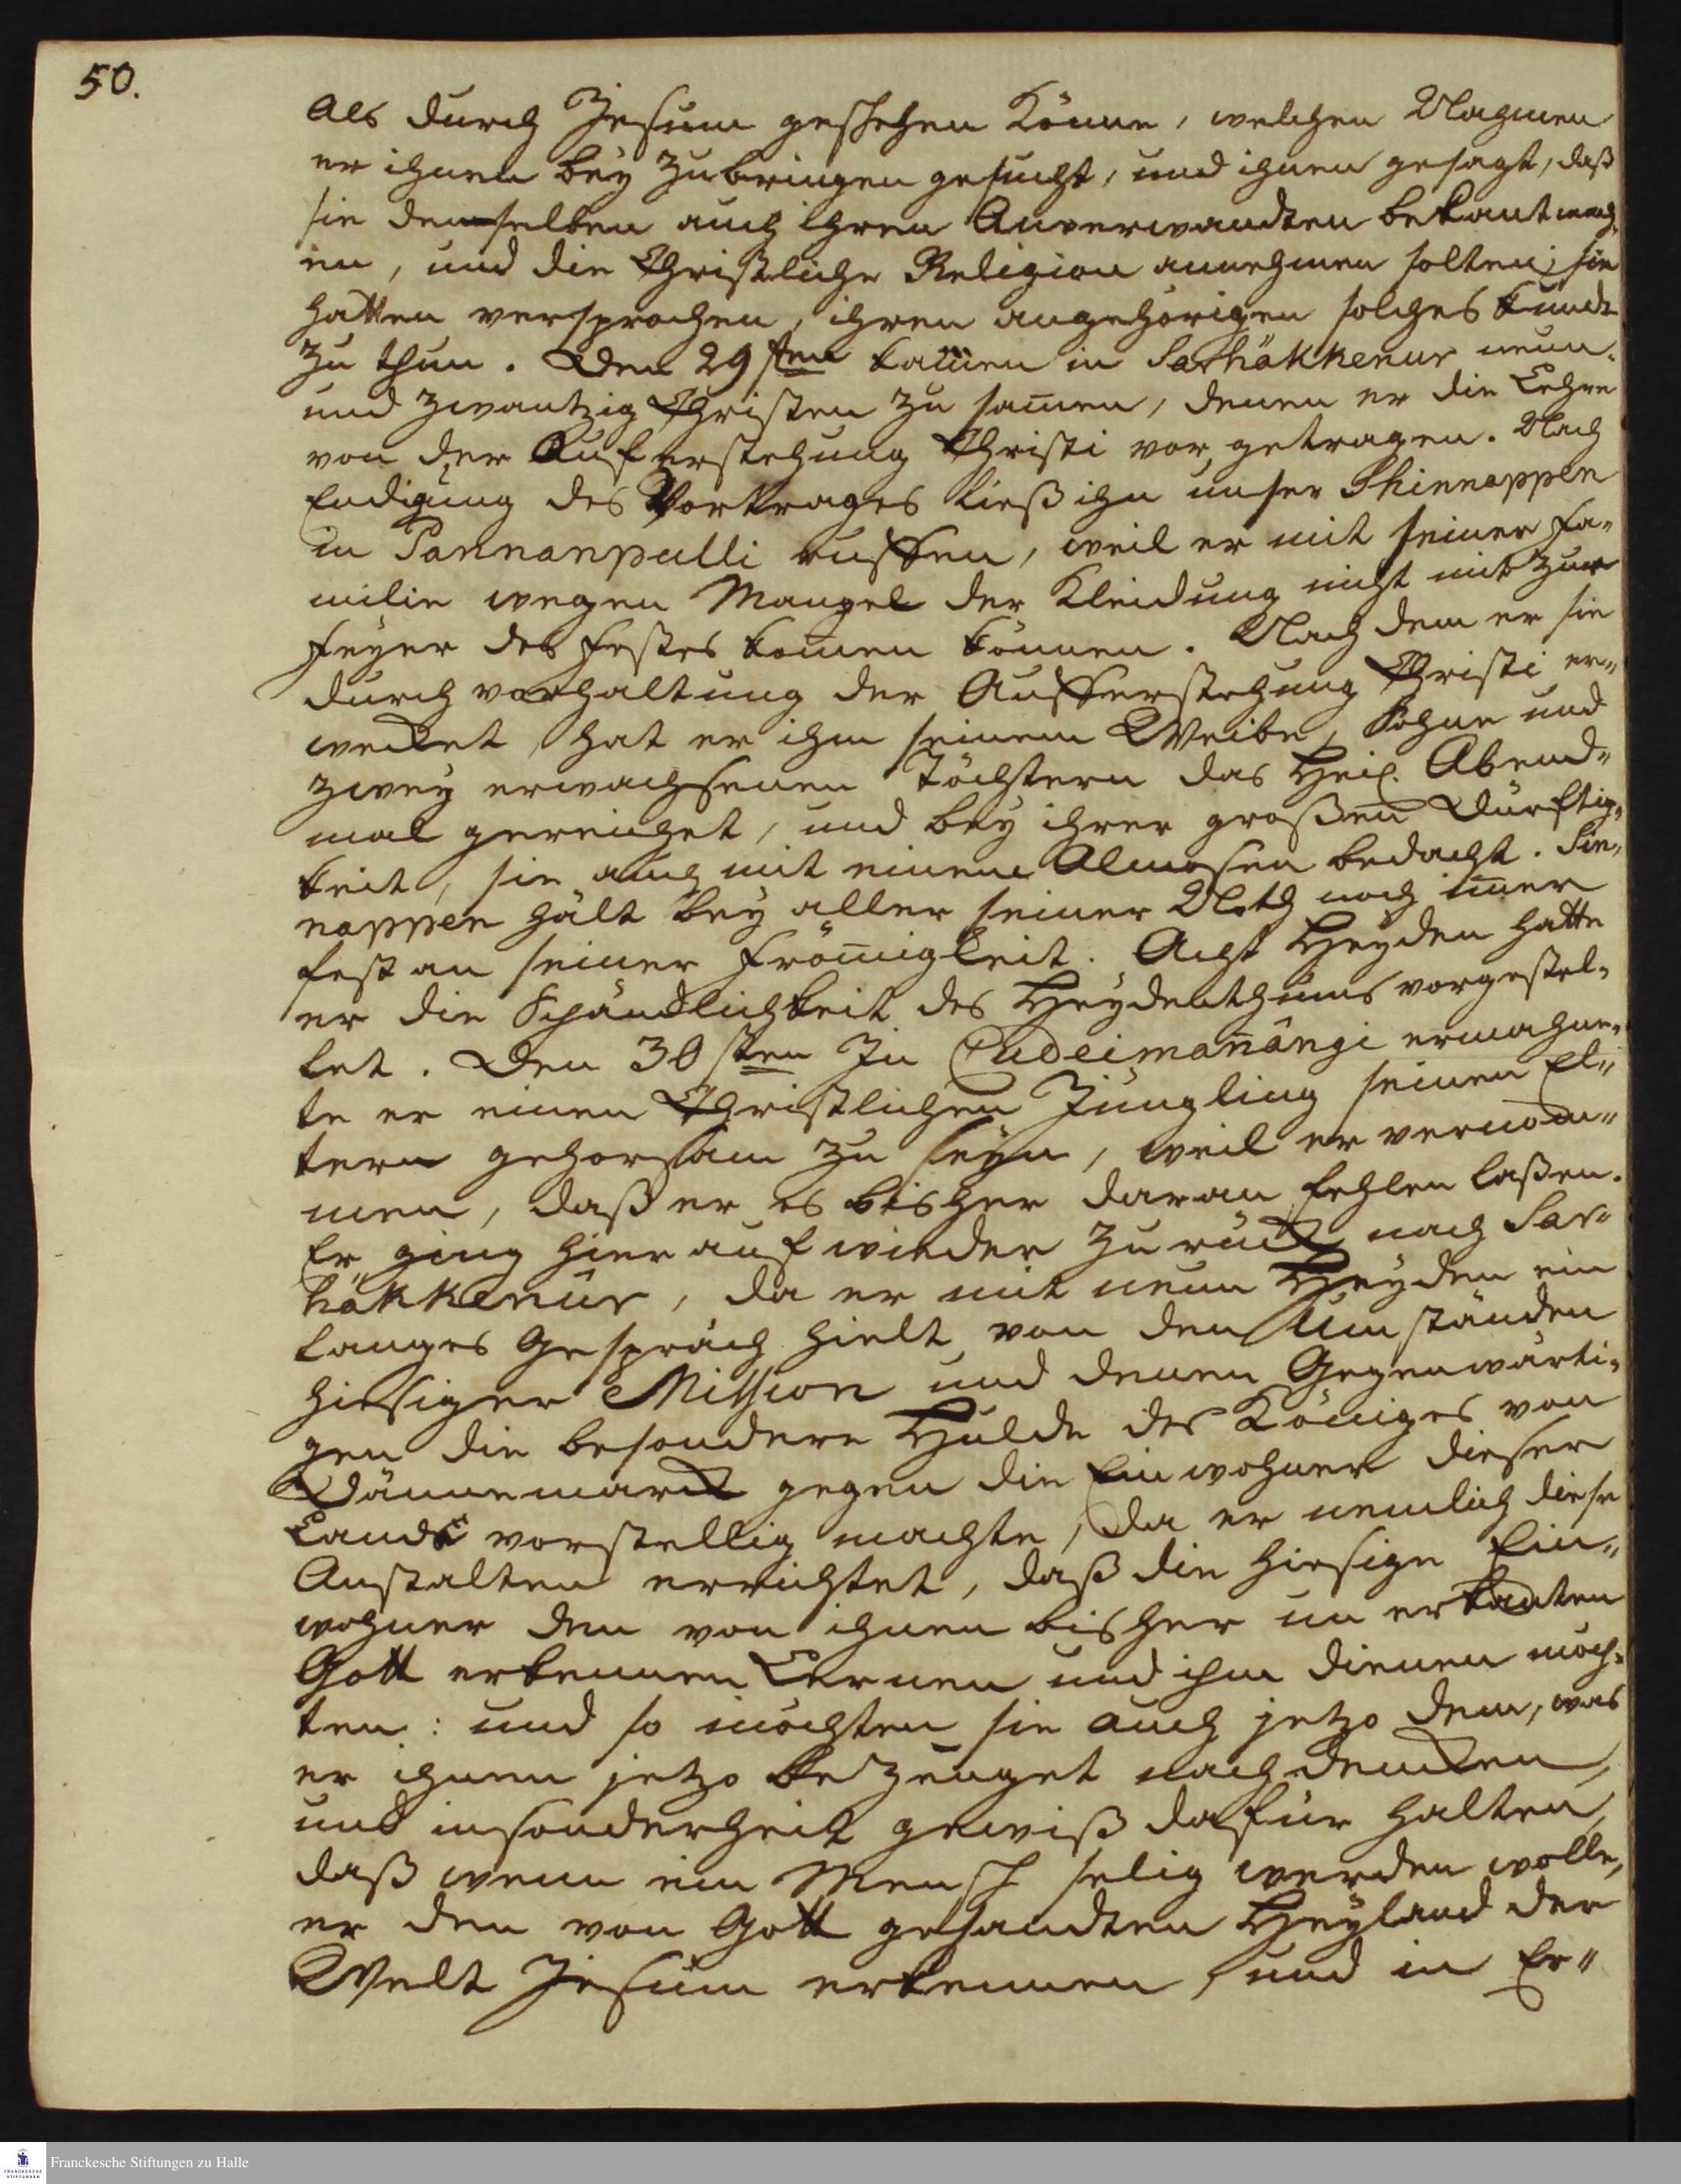 50.
als durch Jesum geschehen könne, welchen Nahmen
er ihnen bey zubringen gesucht, und ihnen gesagt, daß
sie denselben auch ihren Anverwandten bekant mach-
en, und die Christliche Religion annehmen solten; sie
hatten versprochen, ihren angehörigen solches kund
zu thun. Den 29sten kamen in Sarhäkkenur neun-
und zwantzig Christen zu samen, denen er die Lehre
von der Auferstehung Christi vor getragen. Nach
Endigung des Vortrages ließ ihn unser Shinnappen
in Pannanpulli ruffen, weil er mit seiner Fa-
milie wegen Mangel der Kleidung nicht mit zur
Feyer des Festes komen können. Nach dem er sie
durch vorhaltung der Aufferstehung Christi er-
wecket, hat er ihm seinem Weibe, Sohne und
zwey erwachsenen Töchtern das Heil. Abend-
mal gereichet, und bey ihrer großen Dürftig-
keit, sie auch mit einem Almosen bedacht. Sin-
nappen hält bey aller seiner Noth noch imer
fest an seiner Frömigkeit. Acht Heyden hatte
er die Schändlichkeit des Heydenthums vorgestel-
let. Den 30sten In Cudeimanängi ermahne-
te er einen Christlichen Jüngling seinen El-
tern gehorsam zu seyn, weil er vernom-
men, daß er es bisher daran fehlen laßen.
Er ging hierauf wieder zurück nach Sar-
häkkenur, da er mit neun Heyden ein
langes Gespräch hielt von den Umständen
hiesiger Mission und denen Gegenwärti-
gen die besondere Hulde des Königes von
Dännemarck gegen die Einwohner dieser
Lande vorstellig machte, da er nemlich diese
Anstalten errichtet, daß die hiesige Ein-
wohner den von ihnen bisher un erkanten
Gott erkennen Lernen und ihm dienen möch-
ten: und so möchten sie auch jetzo dem, was
er ihnen jetzo bezeuget nachdencken,
und insonderheit gewiß dafür halten,
daß wenn ein Mensch selig werden wolle,
er den von Gott gesandten Heyland der
Welt Jesum erkennen, und in Er-
Franckesche Stiftungen zu Halle
FRANCKESCHE STIFTUNGEN